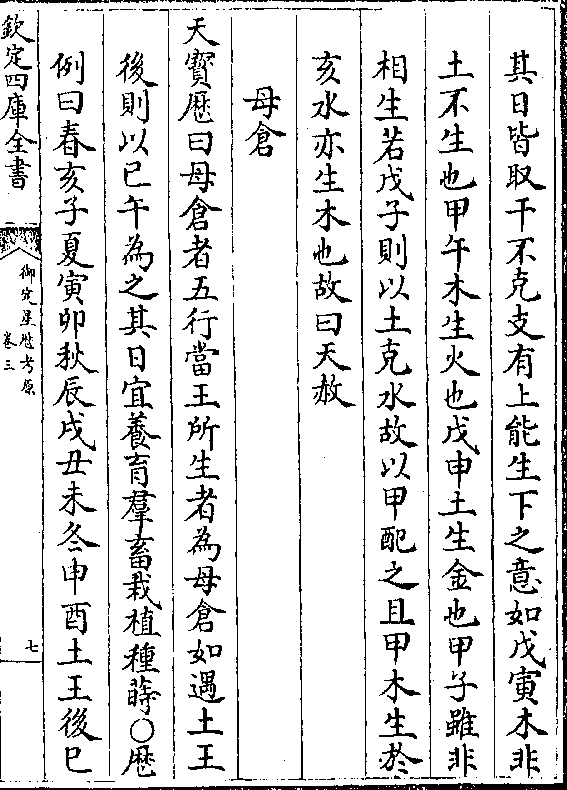 其日皆取干不克支有上能生下之意如戊寅木非
土不生也甲午木生火也戊申土生金也甲子雖非
相生若戊子則以土克水故以甲配之且甲木生於
亥水亦生木也故曰天赦
母倉
天寳厯曰母倉者五行當王所生者為母倉如遇土王
後則以巳午為之其日宜養育羣畜栽植種蒔○厯
例曰春亥子夏寅卯秋辰戌丑未冬申酉土王後巳
欽定四庫全書
御定星厯考原
卷三
七